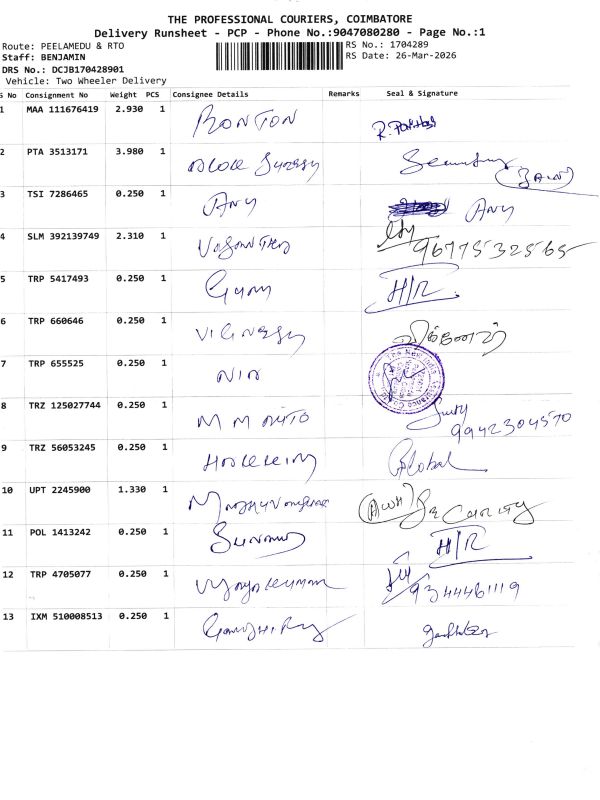 THE PROFESSIONAL COURIERS, COIMBATORE
Delivery Runsheet - PCP - Phone No.:9047080280 - Page No.:1
Route: PEELAMEDU & RTO RS No.: 1704289
Staff: BENJAMIN RS Date: 26-Mar-2026
DRS No.: DCJB170428901
Vehicle: Two Wheeler Delivery
S No Consignment No Weight PCS Consignee Details Remarks Seal & Signature
1 MAA 111676419 2.930 1 RONTON
2 PTA 3513171 3.980 1 Security
3 TSI 7286465 0.250 1 Any Any
4 SLM 392139749 2.310 1 9677532565
5 TRP 5417493 0.250 1 H/R
6 TRP 660646 0.250 1 விக்னேஷ்
7 TRP 655525 0.250 1 NIA
8 TRZ 125027744 0.250 1 M M AUTO 9942304570
9 TRZ 56053245 0.250 1 Global
10 UPT 2245900 1.330 1 SECURITY
11 POL 1413242 0.250 1 H/R
12 TRP 4705077 0.250 1 Vijayakumar 9344461119
13 IXM 510008513 0.250 1